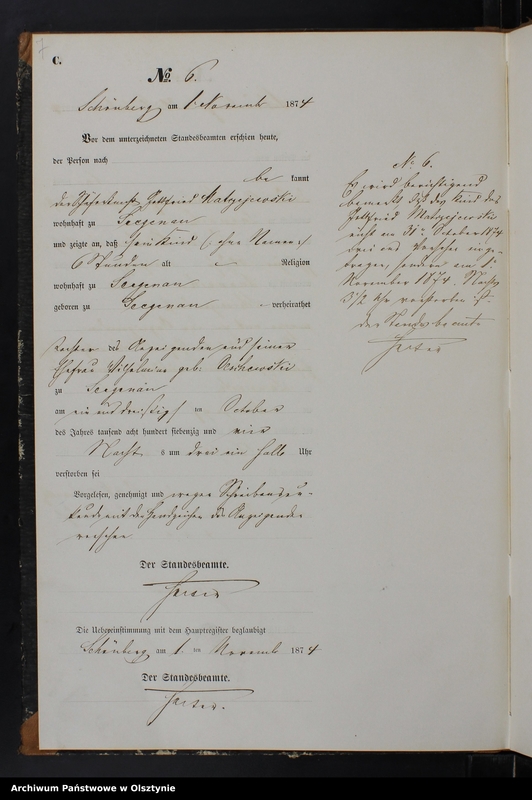 C.
No. 6.
Schönberg am 1. Novemb 1874
Vor dem unterzeichneten Standesbeamten erschien heute,
der Person nach
be kannt
der Gottfried Matzejewski
wohnhaft zu Seegenau
und zeigte an, daß sein Kind (ohne Namen)
6 Stunden alt Religion
wohnhaft zu Seegenau
geboren zu Seegenau verheirathet
Tochter des Anzeigenden und seiner
Ehefrau Wilhelmine geb.
zu Seegenau
am ein und dreißigst en October
des Jahres tausend acht hundert siebenzig und vier
Nachts um drei ein halb Uhr
verstorben sei
Vorgelesen, genehmigt und wegen Schreibensun-
kunde mit Handzeichen des Anzeigenden
versehen
Der Standesbeamte.
Die Uebereinstimmung mit dem Hauptregister beglaubigt
Schönberg am 1. ten Novemb 1874
Der Standesbeamte.
No 6.
Es wird berichtigend
bemerkt daß das Kind des
Gottfried Matzejewski
nicht am 31ten October 1874
sondern am 1.
November 1874 Nachts
3 1/2 Uhr verstorben ist.
der Standesbeamte
Archiwum Państwowe w Olsztynie